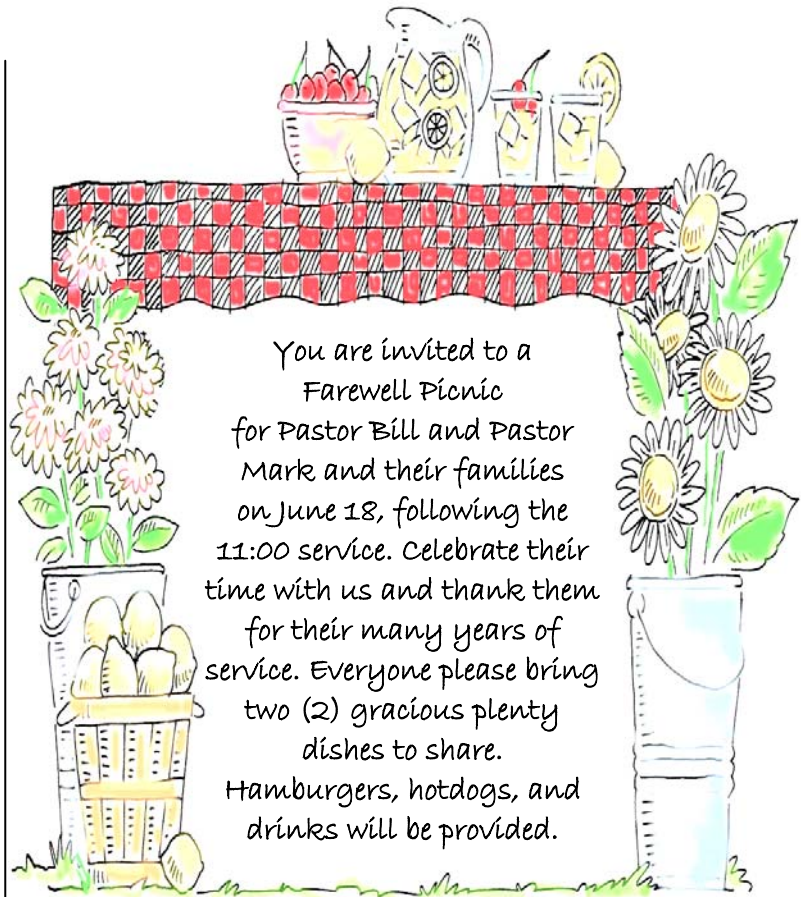 You are invited to a
Farewell Picnic
for Pastor Bill and Pastor
Mark and their families
on June 18, following the
11:00 service. Celebrate their
time with us and thank them
for their many years of
service. Everyone please bring
two (2) gracious plenty
dishes to share.
Hamburgers, hotdogs, and
drinks will be provided.